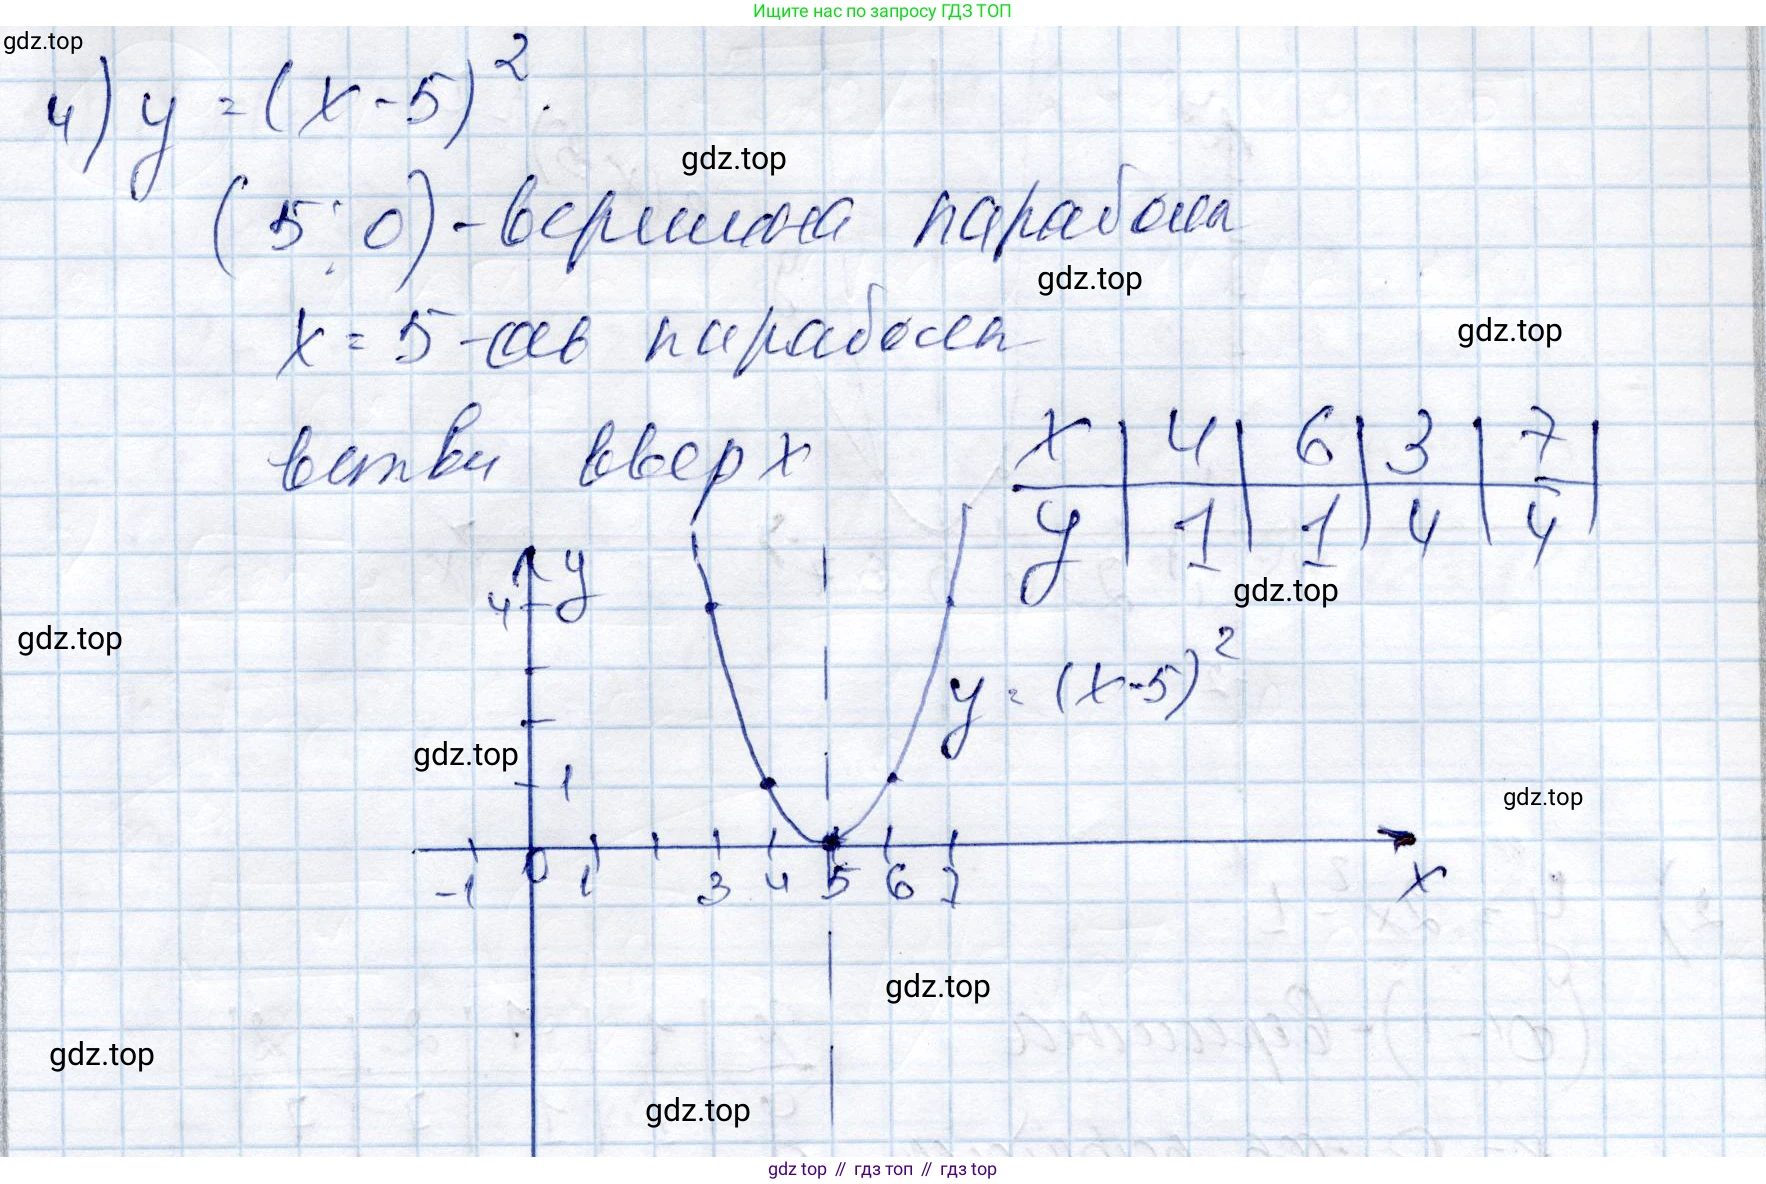 Ищите нас по запросу ГДЗ ТОП
gdz.top
4) y = (x-5)².
gdz.top
(5; 0) - вершина параболы
gdz.top
x = 5 - ось параболы
gdz.top
ветви вверх
x | 4 | 6 | 3 | 7 |
y | 1 | 1 | 4 | 4 |
gdz.top
y
4
gdz.top
y = (x-5)²
gdz.top
1
gdz.top
-1 0 1 3 4 5 6 7 x
gdz.top
gdz.top
gdz.top
gdz top // гдз топ // гдз top